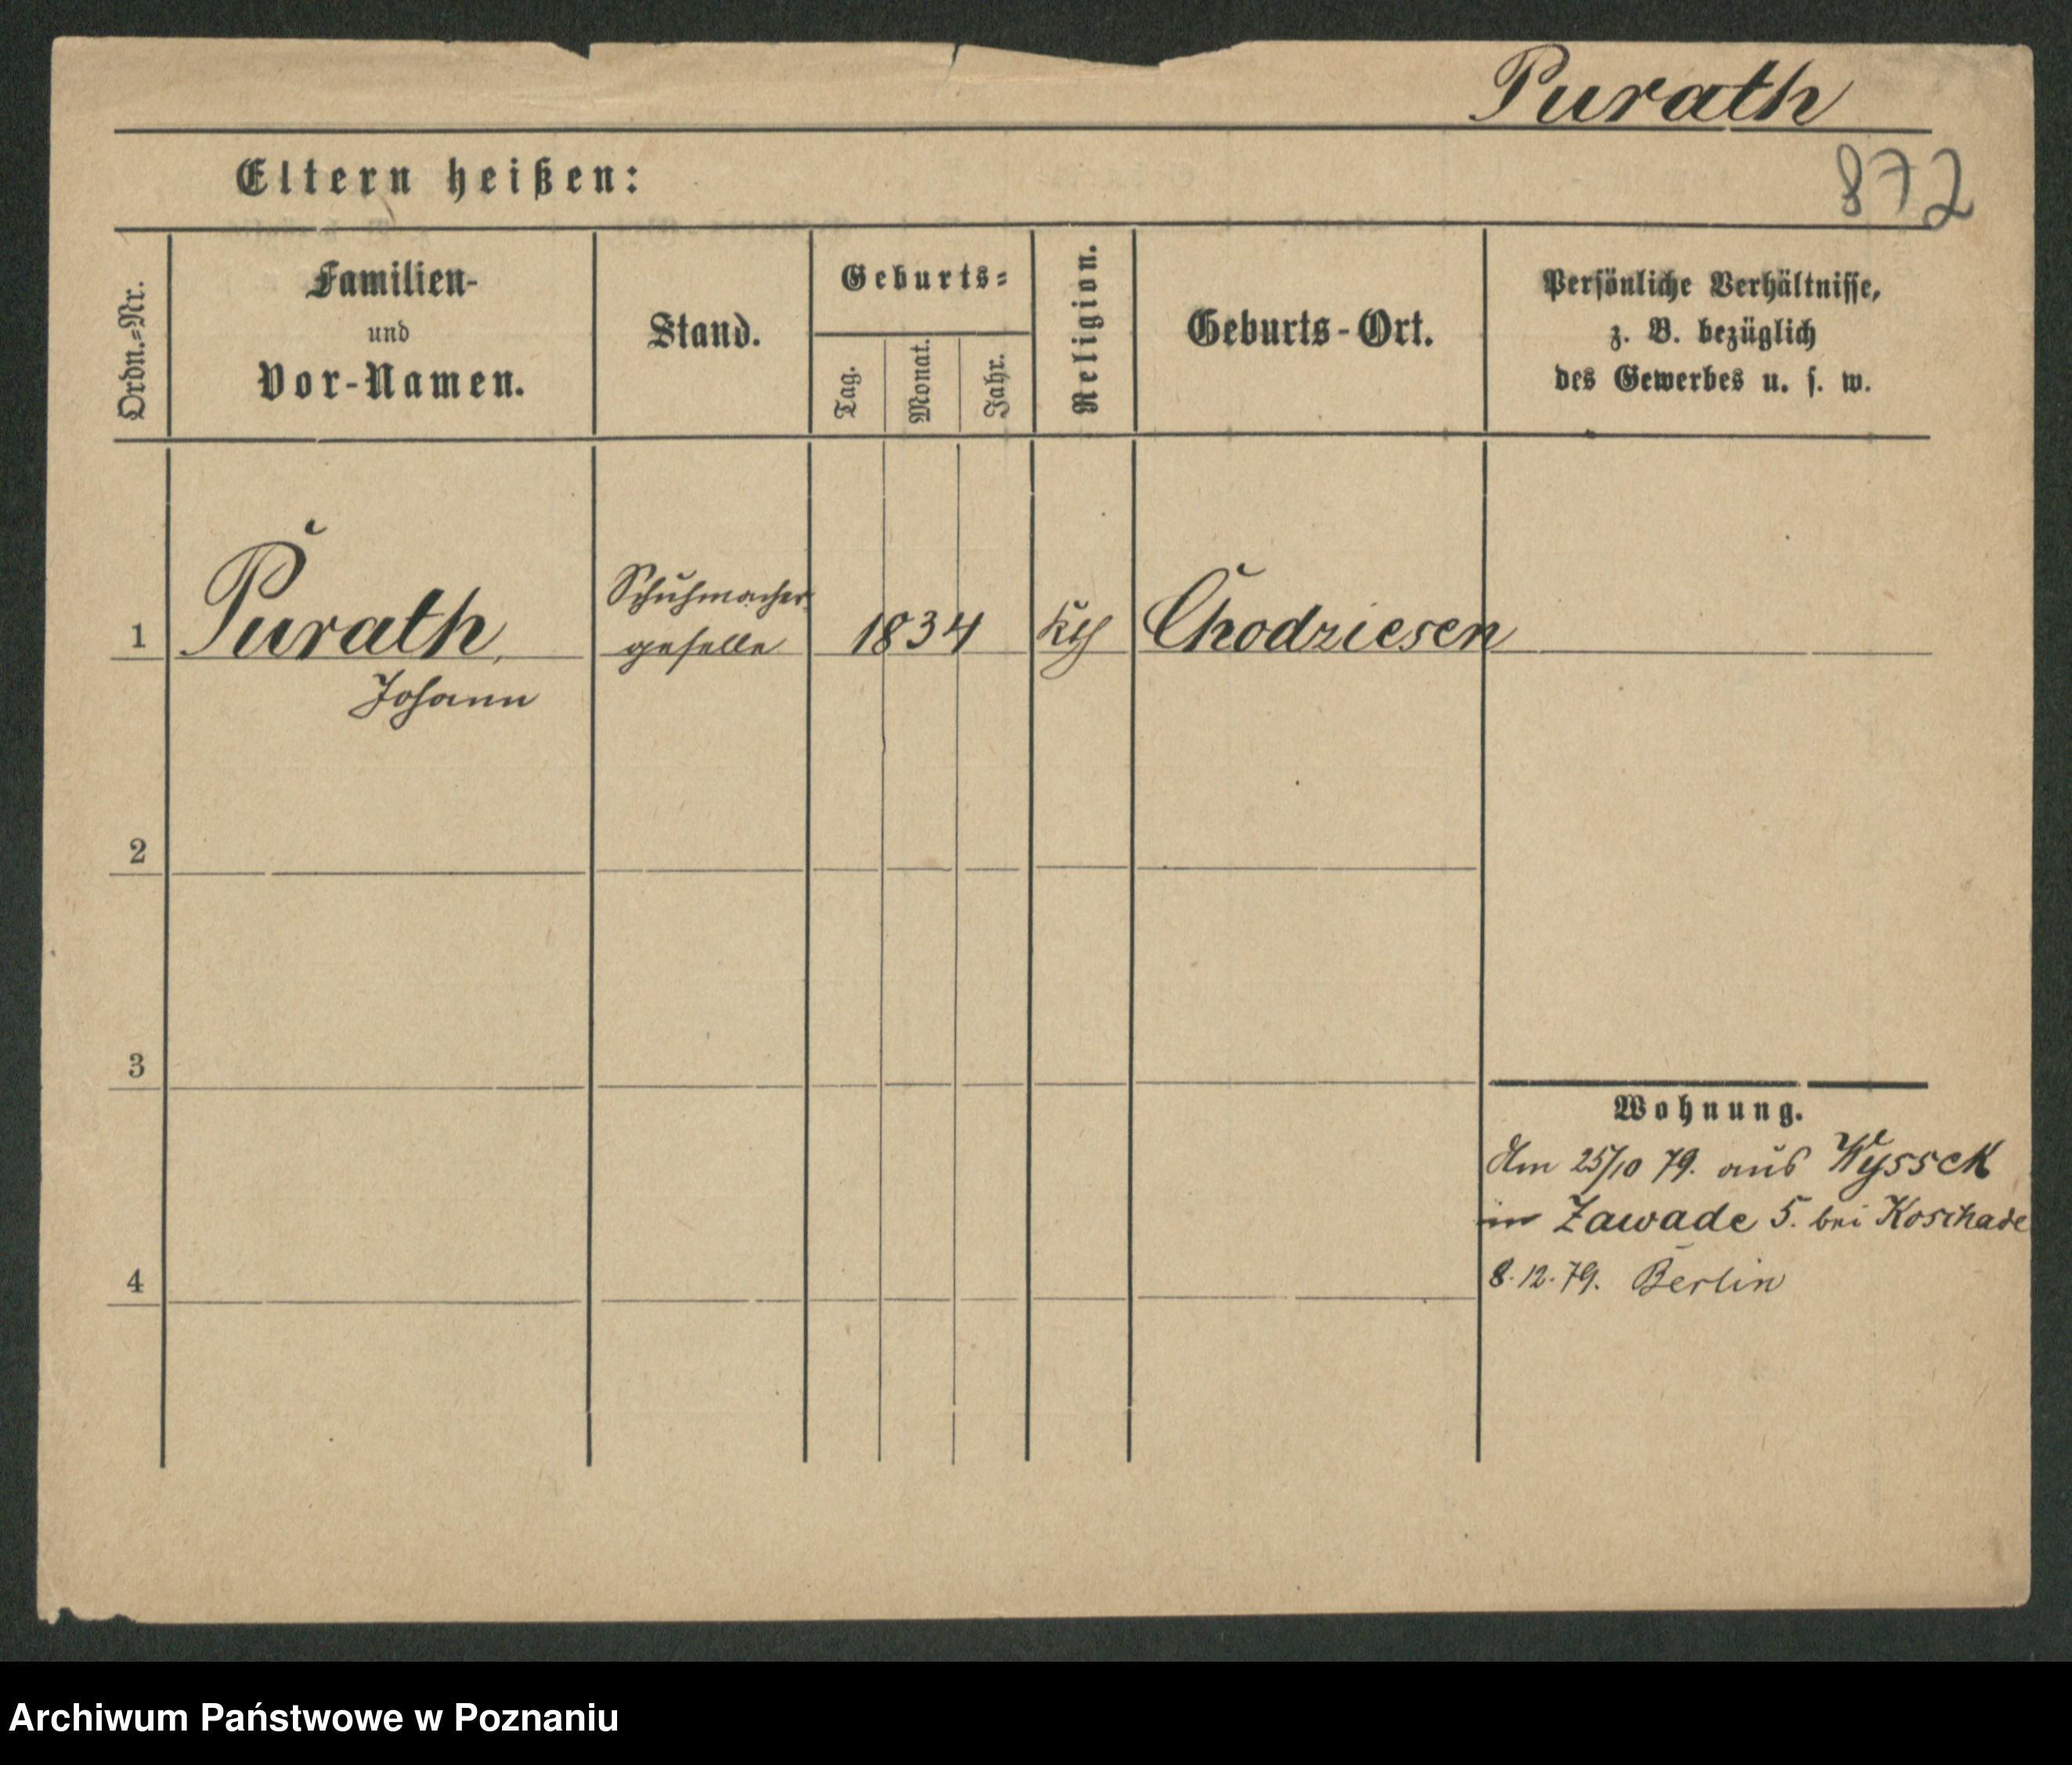 Purath
872
Eltern heißen:
Ordn.-Nr.
Familien-
und
Vor-Namen.
Stand.
Geburts-
Tag.
Monat.
Jahr.
Religion.
Geburts-Ort.
Persönliche Verhältnisse,
z. B. bezüglich
des Gewerbes u. s. w.
1 Purath, Schuhmacher 1834 kth Chodziesen
geselle
Johann
2
3
Wohnung.
Am 25/10 79. aus Wysseck
in Zawade 5. bei Koschade
4 8.12.79. Berlin
Archiwum Państwowe w Poznaniu